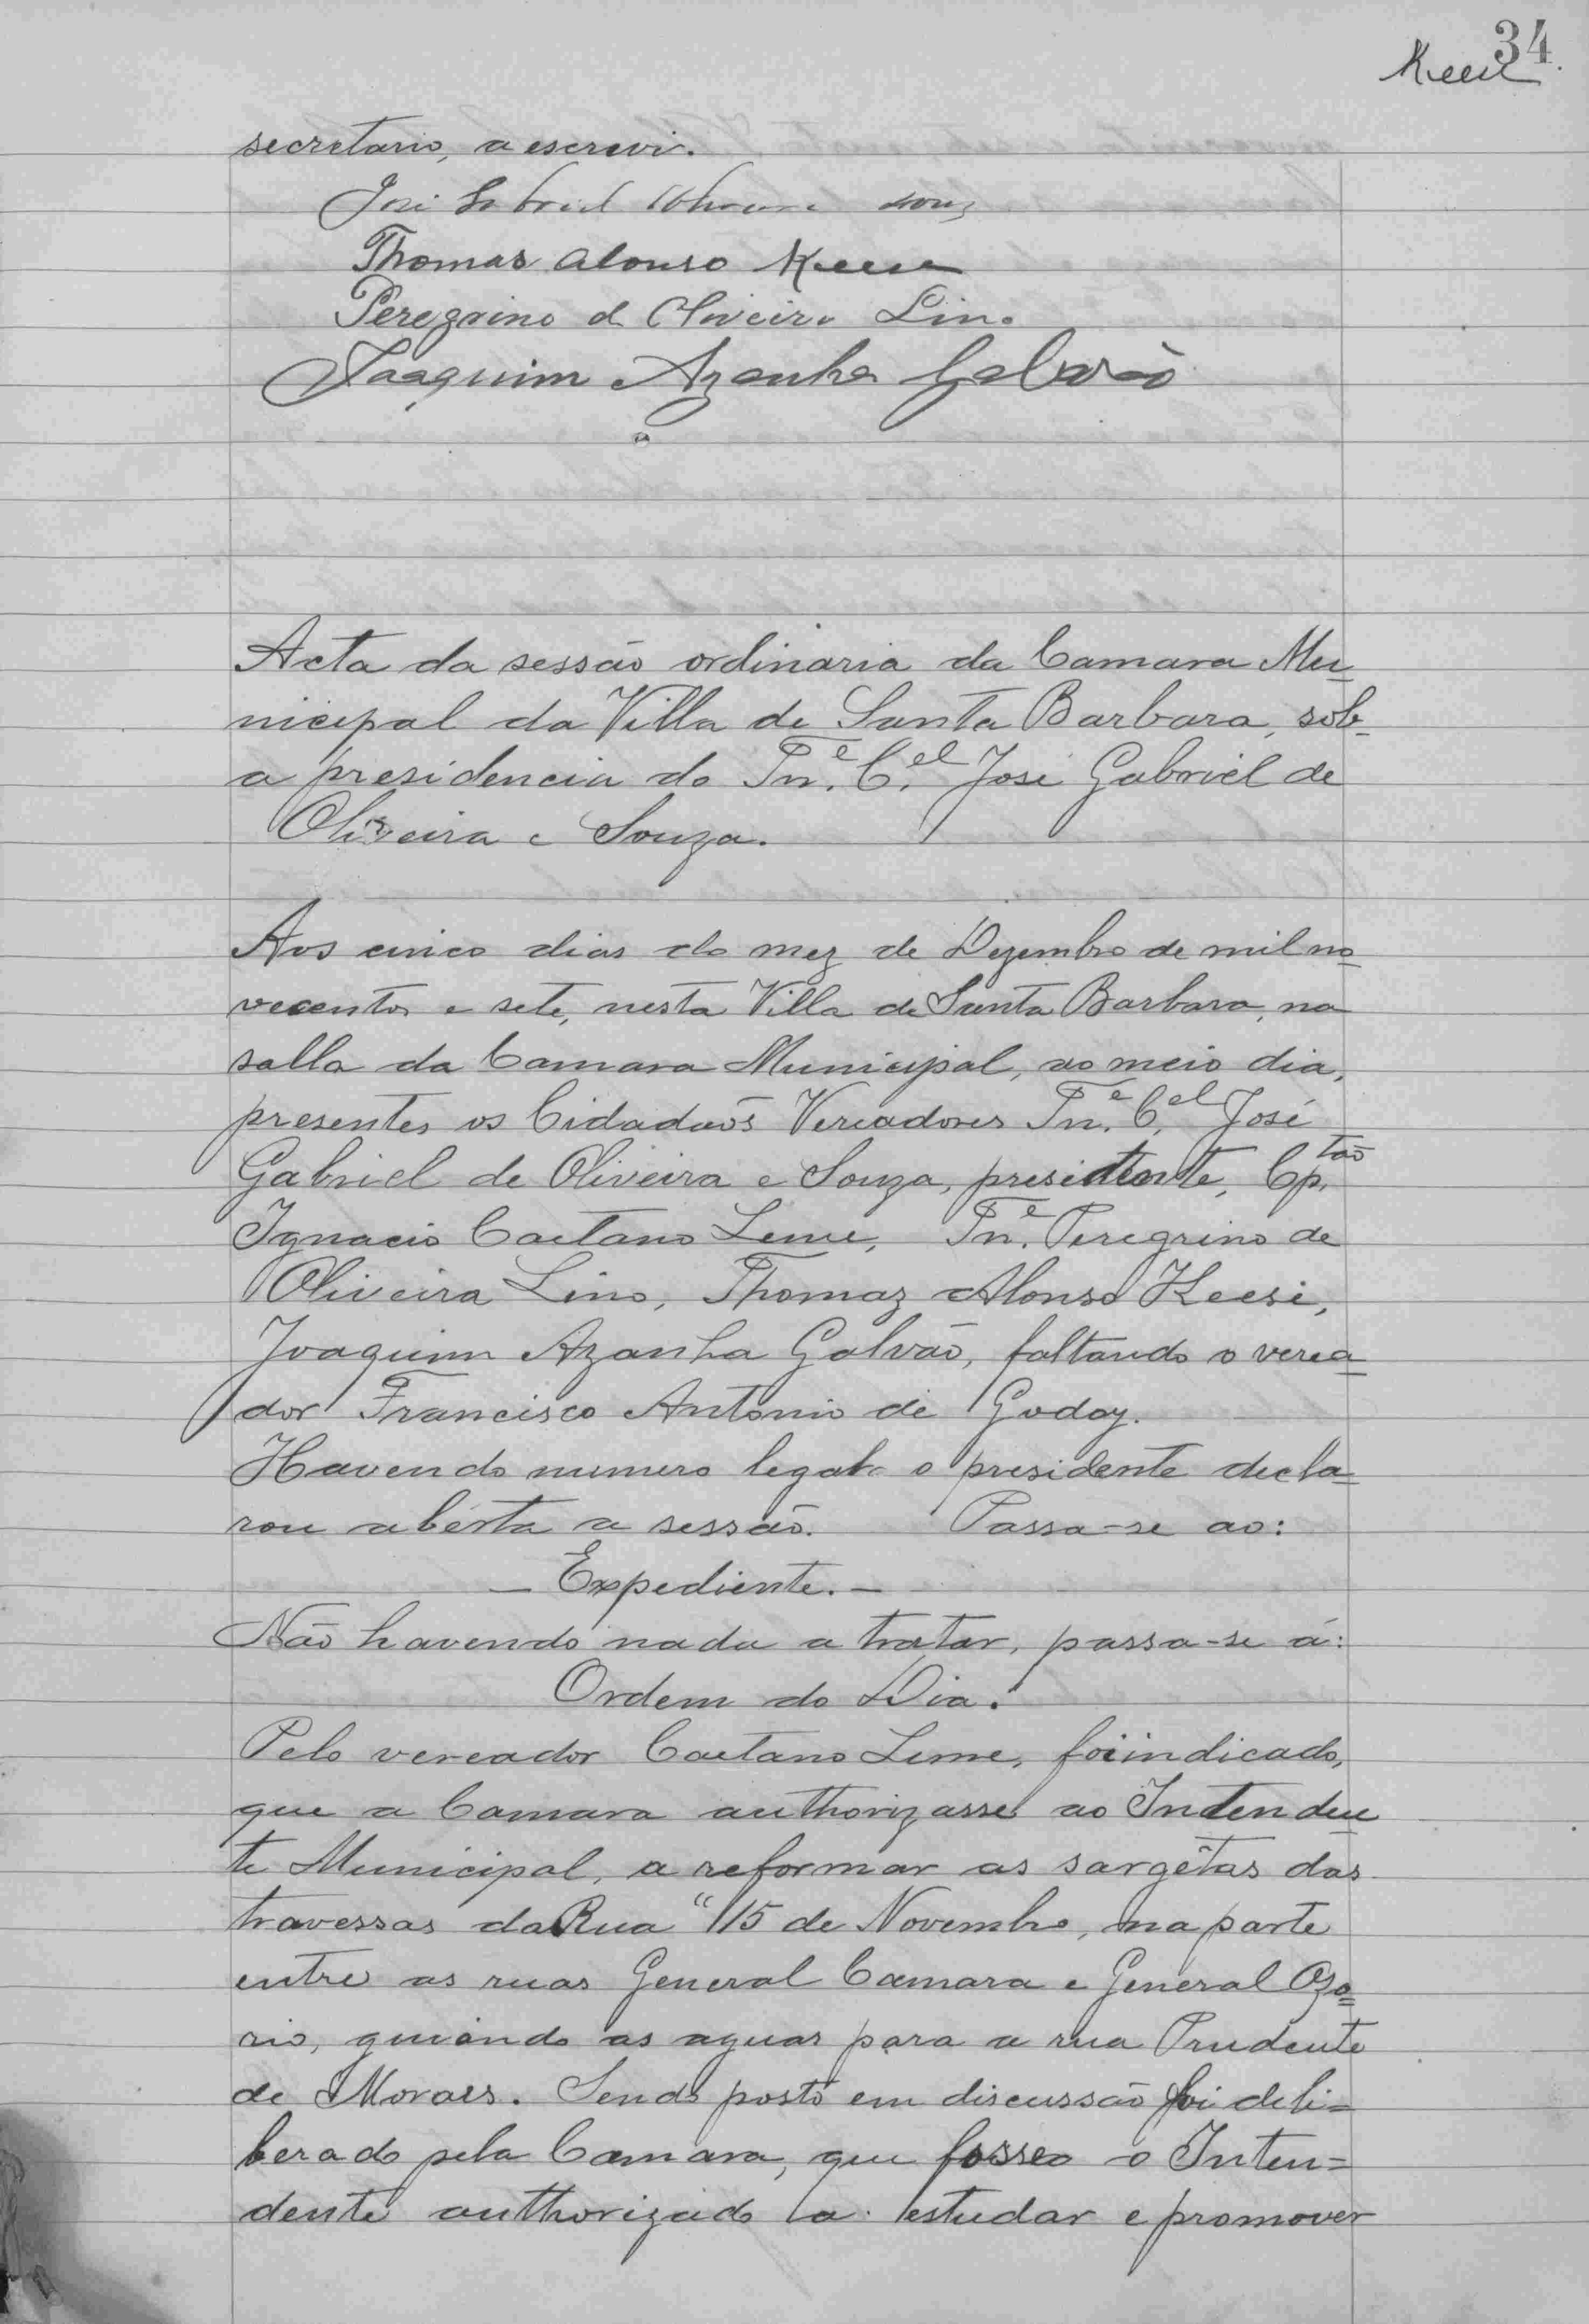 34.
Keese
secretario, a escrevi.
José Gabriel Oliveira Souza
Thomas Alonso Keese
Peregrino d Oliveira Lino
Joaquim Azanha Galvão
Acta da sessão ordinaria da Camara Mu-
nicipal da Villa de Santa Barbara, sob-
a presidencia do Tn.e C.el José Gabriel de
Oliveira e Souza.
Aos cinco dias do mez de Dezembro de mil no=
vecentos e sete, nesta Villa de Santa Barbara, na
salla da Camara Municipal, ao meio dia,
presentes os Cidadãos Vereadores Tn.e C.el José
Gabriel de Oliveira e Souza, presidente, Cp.tão
Ignacio Caetano Leme, Tn.e Peregrino de
Oliveira Lino, Thomaz Alonso Keese,
Joaquim Azanha Galvão, faltando o verea=
dor Francisco Antonio de Godoy.
Havendo numero legal o presidente decla=
rou aberta a sessão. Passa-se ao:
— Expediente. —
Não havendo nada a tratar, passa-se á:
Ordem do Dia.
Pelo vereador Caetano Leme, foi indicado,
que a Camara authorizasse ao Intenden
te Municipal, a reformar as sargêtas das
travessas da Rua "15 de Novembro, na parte
entre as ruas General Camara e General Ozo=
rio, guiando as aguas para a rua Prudente
de Moraes. Sendo posto em discussão foi deli=
berado pela Camara, que fosse o Inten=
dente authorizado a estudar e promover